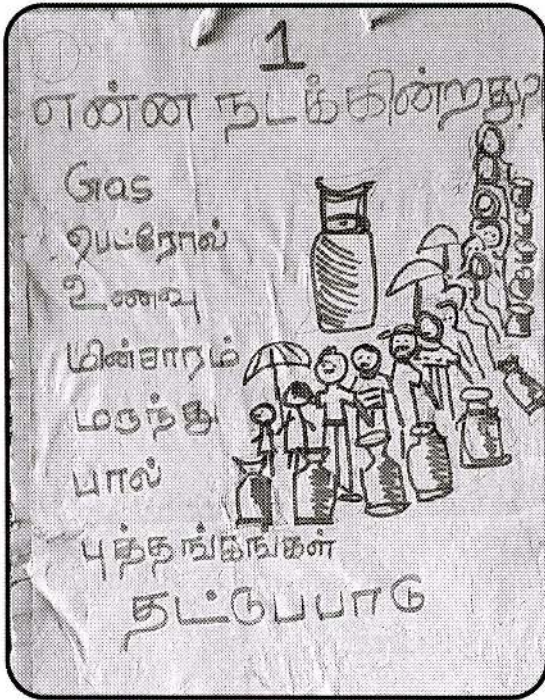 1
என்ன நடக்கின்றது?
Gas
பெட்ரோல்
உணவு
மின்சாரம்
மருந்து
பால்
புத்தங்கங்கள்
தட்டுப்பாடு